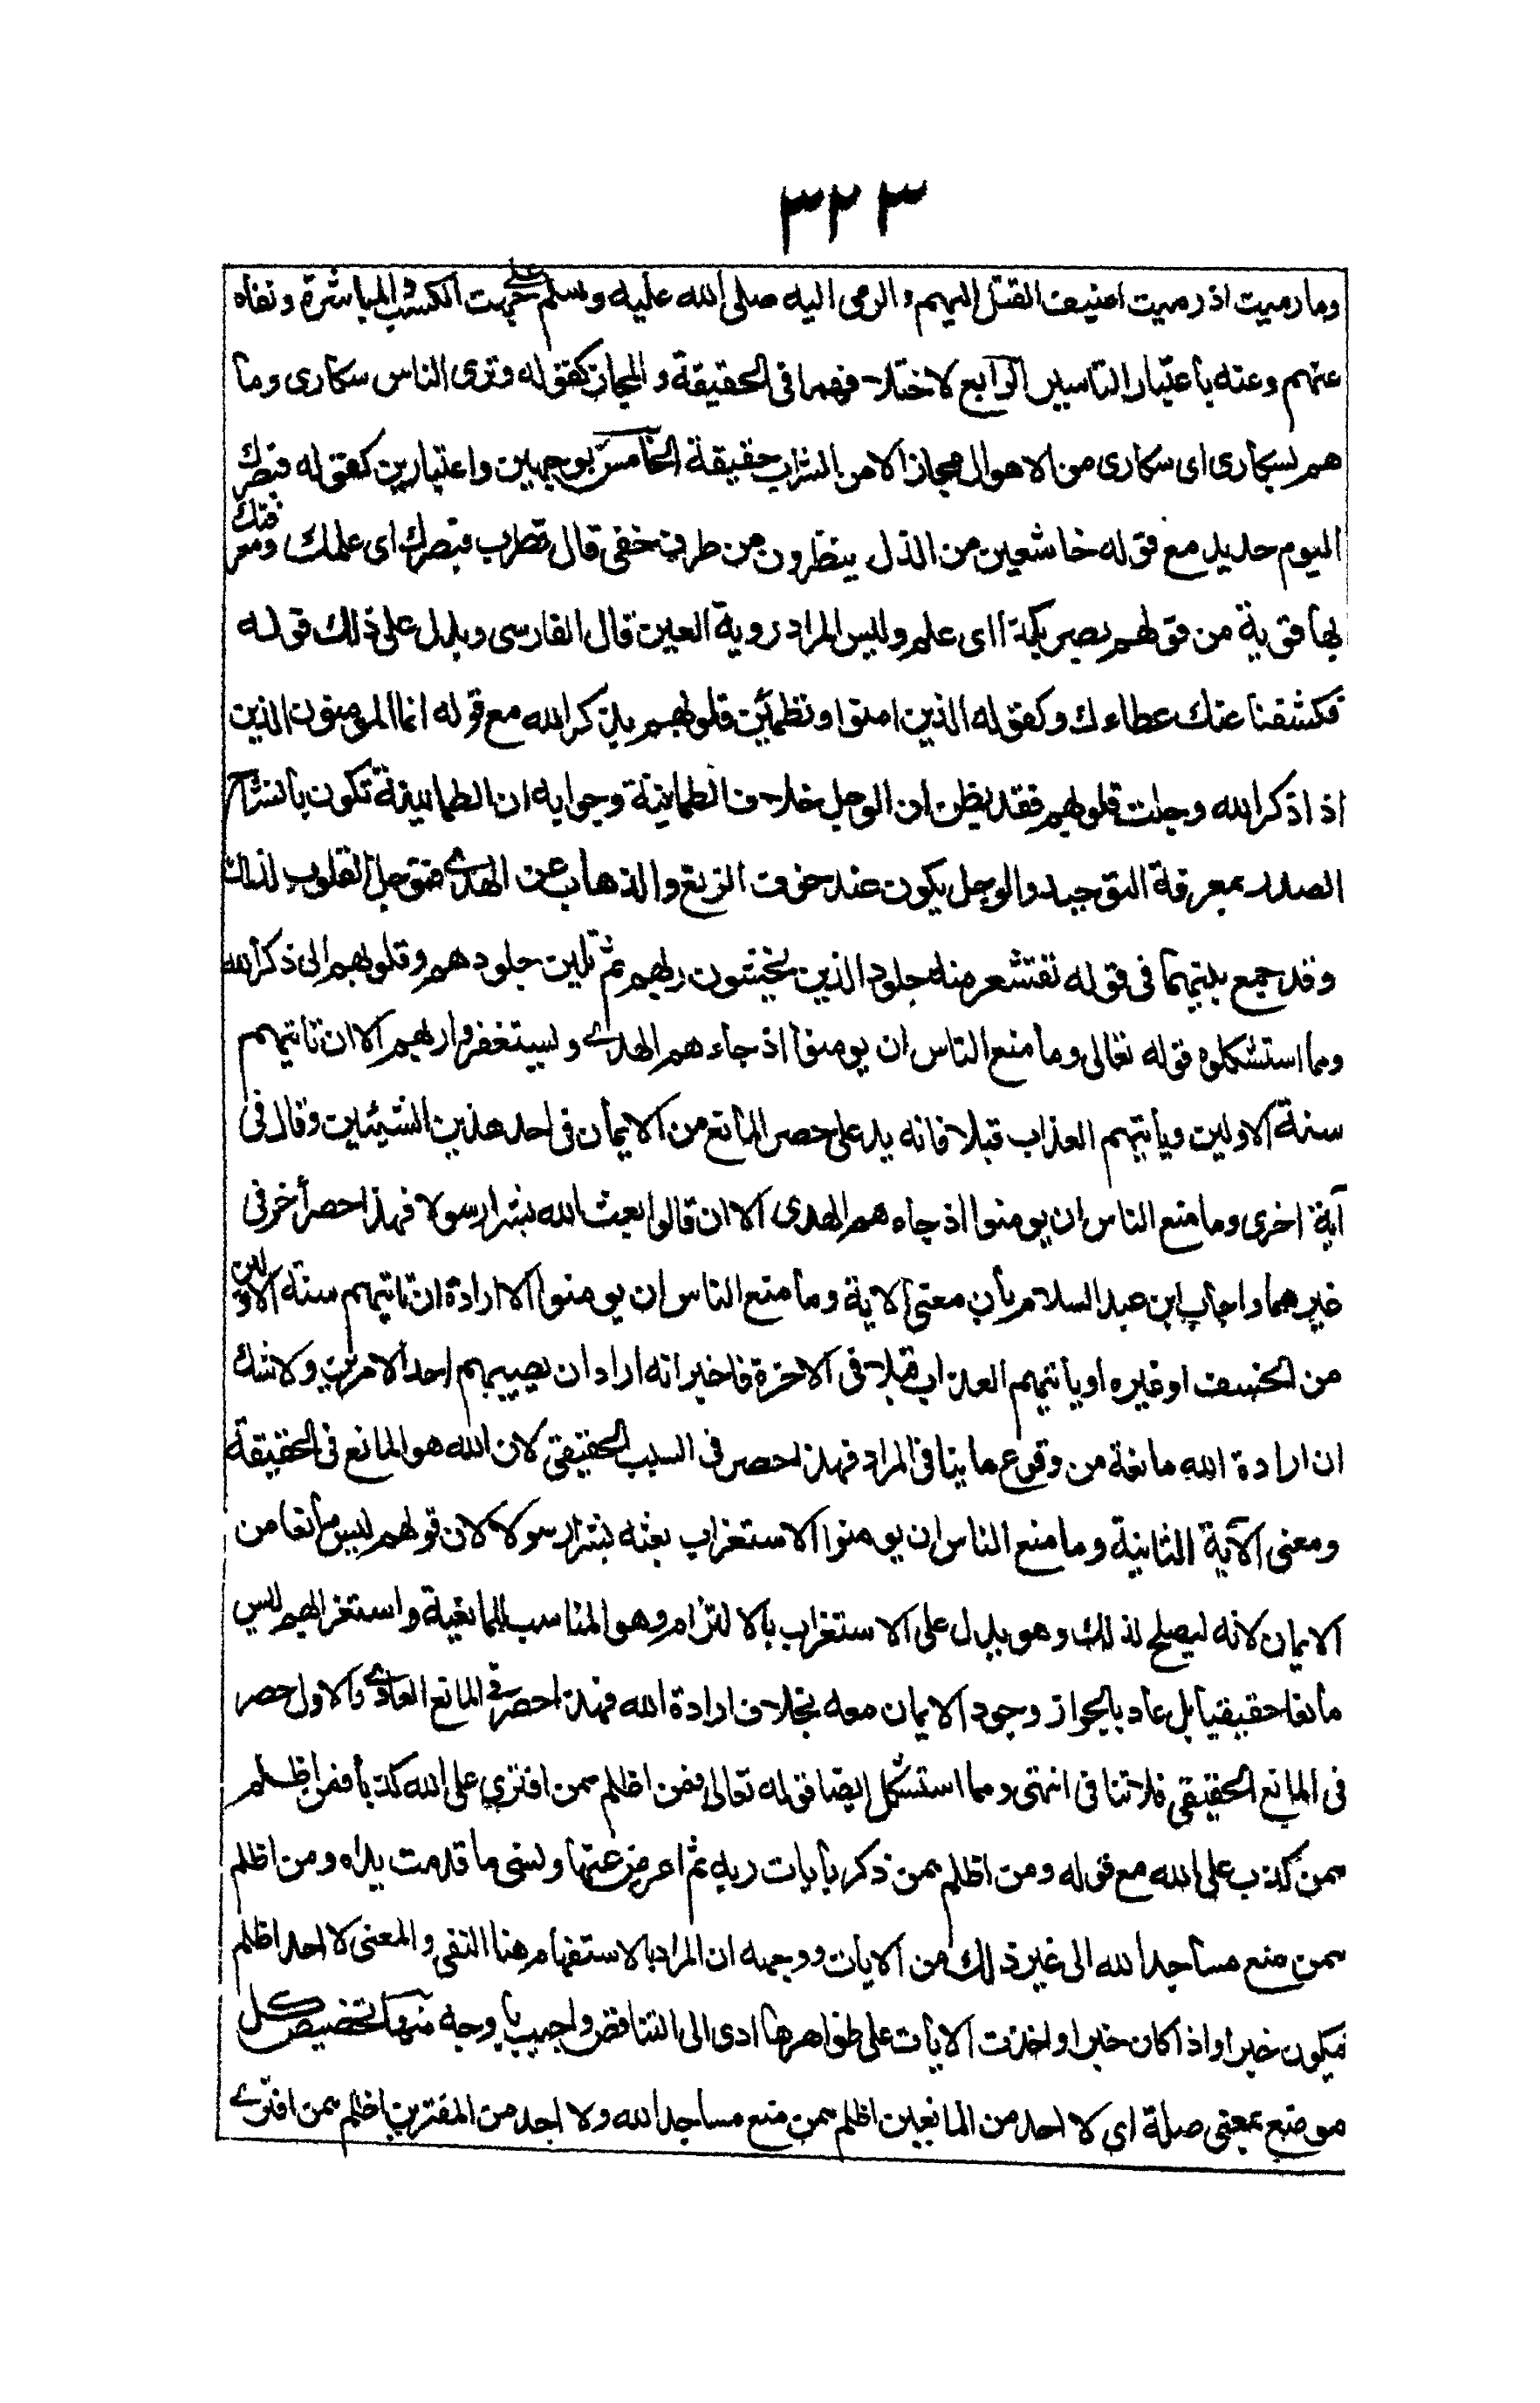 ٣٢٣
وما رميت اذ رميت اضيف القتل اليهم والرمى اليه صلى الله عليه وسلم على جهت الكسب والمباشرة ونفاه
عنهم وعنه باعتبار التاسير الرابع لاختلافهما فى الحقيقة والمجاز كقوله وترى الناس سكارى وما
هم بسكارى اى سكارى من الاهوال مجازا لا من الشراب حقيقة الخامس بوجهين واعتبارين كقوله فبصرك
اليوم حديد مع قوله خاشعين من الذل ينظرون من طرف خفى قال قطرب فبصرك اى علمك ومعرفتك
بها قوية من قولهم بصر بكذا اى علم وليس المراد روية العين قال الفارسى ويدل على ذلك قوله
فكشفنا عنك عطاءك وكقوله الذين امنوا وتطمئن قلوبهم بذكر الله مع قوله انما المومنون الذين
اذا ذكر الله وجلت قلوبهم فقد يظن ان الوجل خلاف الطمانينة وجوابه ان الطمانينة تكون بانشراح
الصدر بمعرفة التوحيد والوجل يكون عند خوف الزيغ والذهاب عن الهدى فتوجل القلوب لذلك
وقد جمع بينهما فى قوله تقشعر منه جلود الذين يخشون ربهم ثم تلين جلودهم وقلوبهم الى ذكر الله
ومما استشكلوه قوله تعالى وما منع الناس ان يومنوا اذ جاءهم الهدى ويستغفروا ربهم الا ان تاتيهم
سنة الاولين وياتيهم العذاب قبلا فانه يدل على حصر المانع من الايمان فى احد هذين الشيئين وقال فى
آية اخرى وما منع الناس ان يومنوا اذ جاءهم الهدى الا ان قالوا ابعث الله بشرا رسولا فهذا حصر أخر فى
غيرهما واجاب ابن عبد السلام بان معنى الاية وما منع الناس ان يومنوا الا ارادة ان تاتيهم سنة الاولين
من الخسف او غيره او ياتيهم العذاب قبلا فى الاخرة فاخبر انه اراد ان يصيبهم احد الامرين ولا شك
ان ارادة الله مانعة من وقوع ما ينافى المراد فهذا حصر فى السبب الحقيقى لان الله هو المانع فى الحقيقة
ومعنى الآية الثانية وما منع الناس ان يومنوا الا ستغراب بعثه بشرا رسولا لان قولهم ليس مانعا من
الايمان لانه ليصلح لذلك وهو يدل على الاستغراب بالالتزام وهو المناسب للمانعية واستغرابهم ليس
مانعا حقيقيا بل عاديا لجواز وجود الايمان معه بخلاف ارادة الله فهذا حصر فى المانع العادى والاول حصر
فى المانع الحقيقى فلا تنافى انتهى ومما استشكل ايضا قوله تعالى فمن اظلم ممن افترى على الله كذبا فمن اظلم
ممن كذب على الله مع قوله ومن اظلم ممن ذكر بايات ربه ثم اعرض عنها ونسى ما قدمت يداه ومن اظلم
ممن منع مساجد الله الى غير ذلك من الايات ووجهه ان المراد بالاستفهام هنا النفى والمعنى لا احد اظلم
فيكون خبرا واذا كان خبرا واخذت الايات على ظواهرها ادى الى التناقض واجيب باوجه منها تخصيص كل
موضع بمعنى صلة اى لا احد من المانعين اظلم ممن منع مساجد الله ولا احد من المفترين اظلم ممن افترى